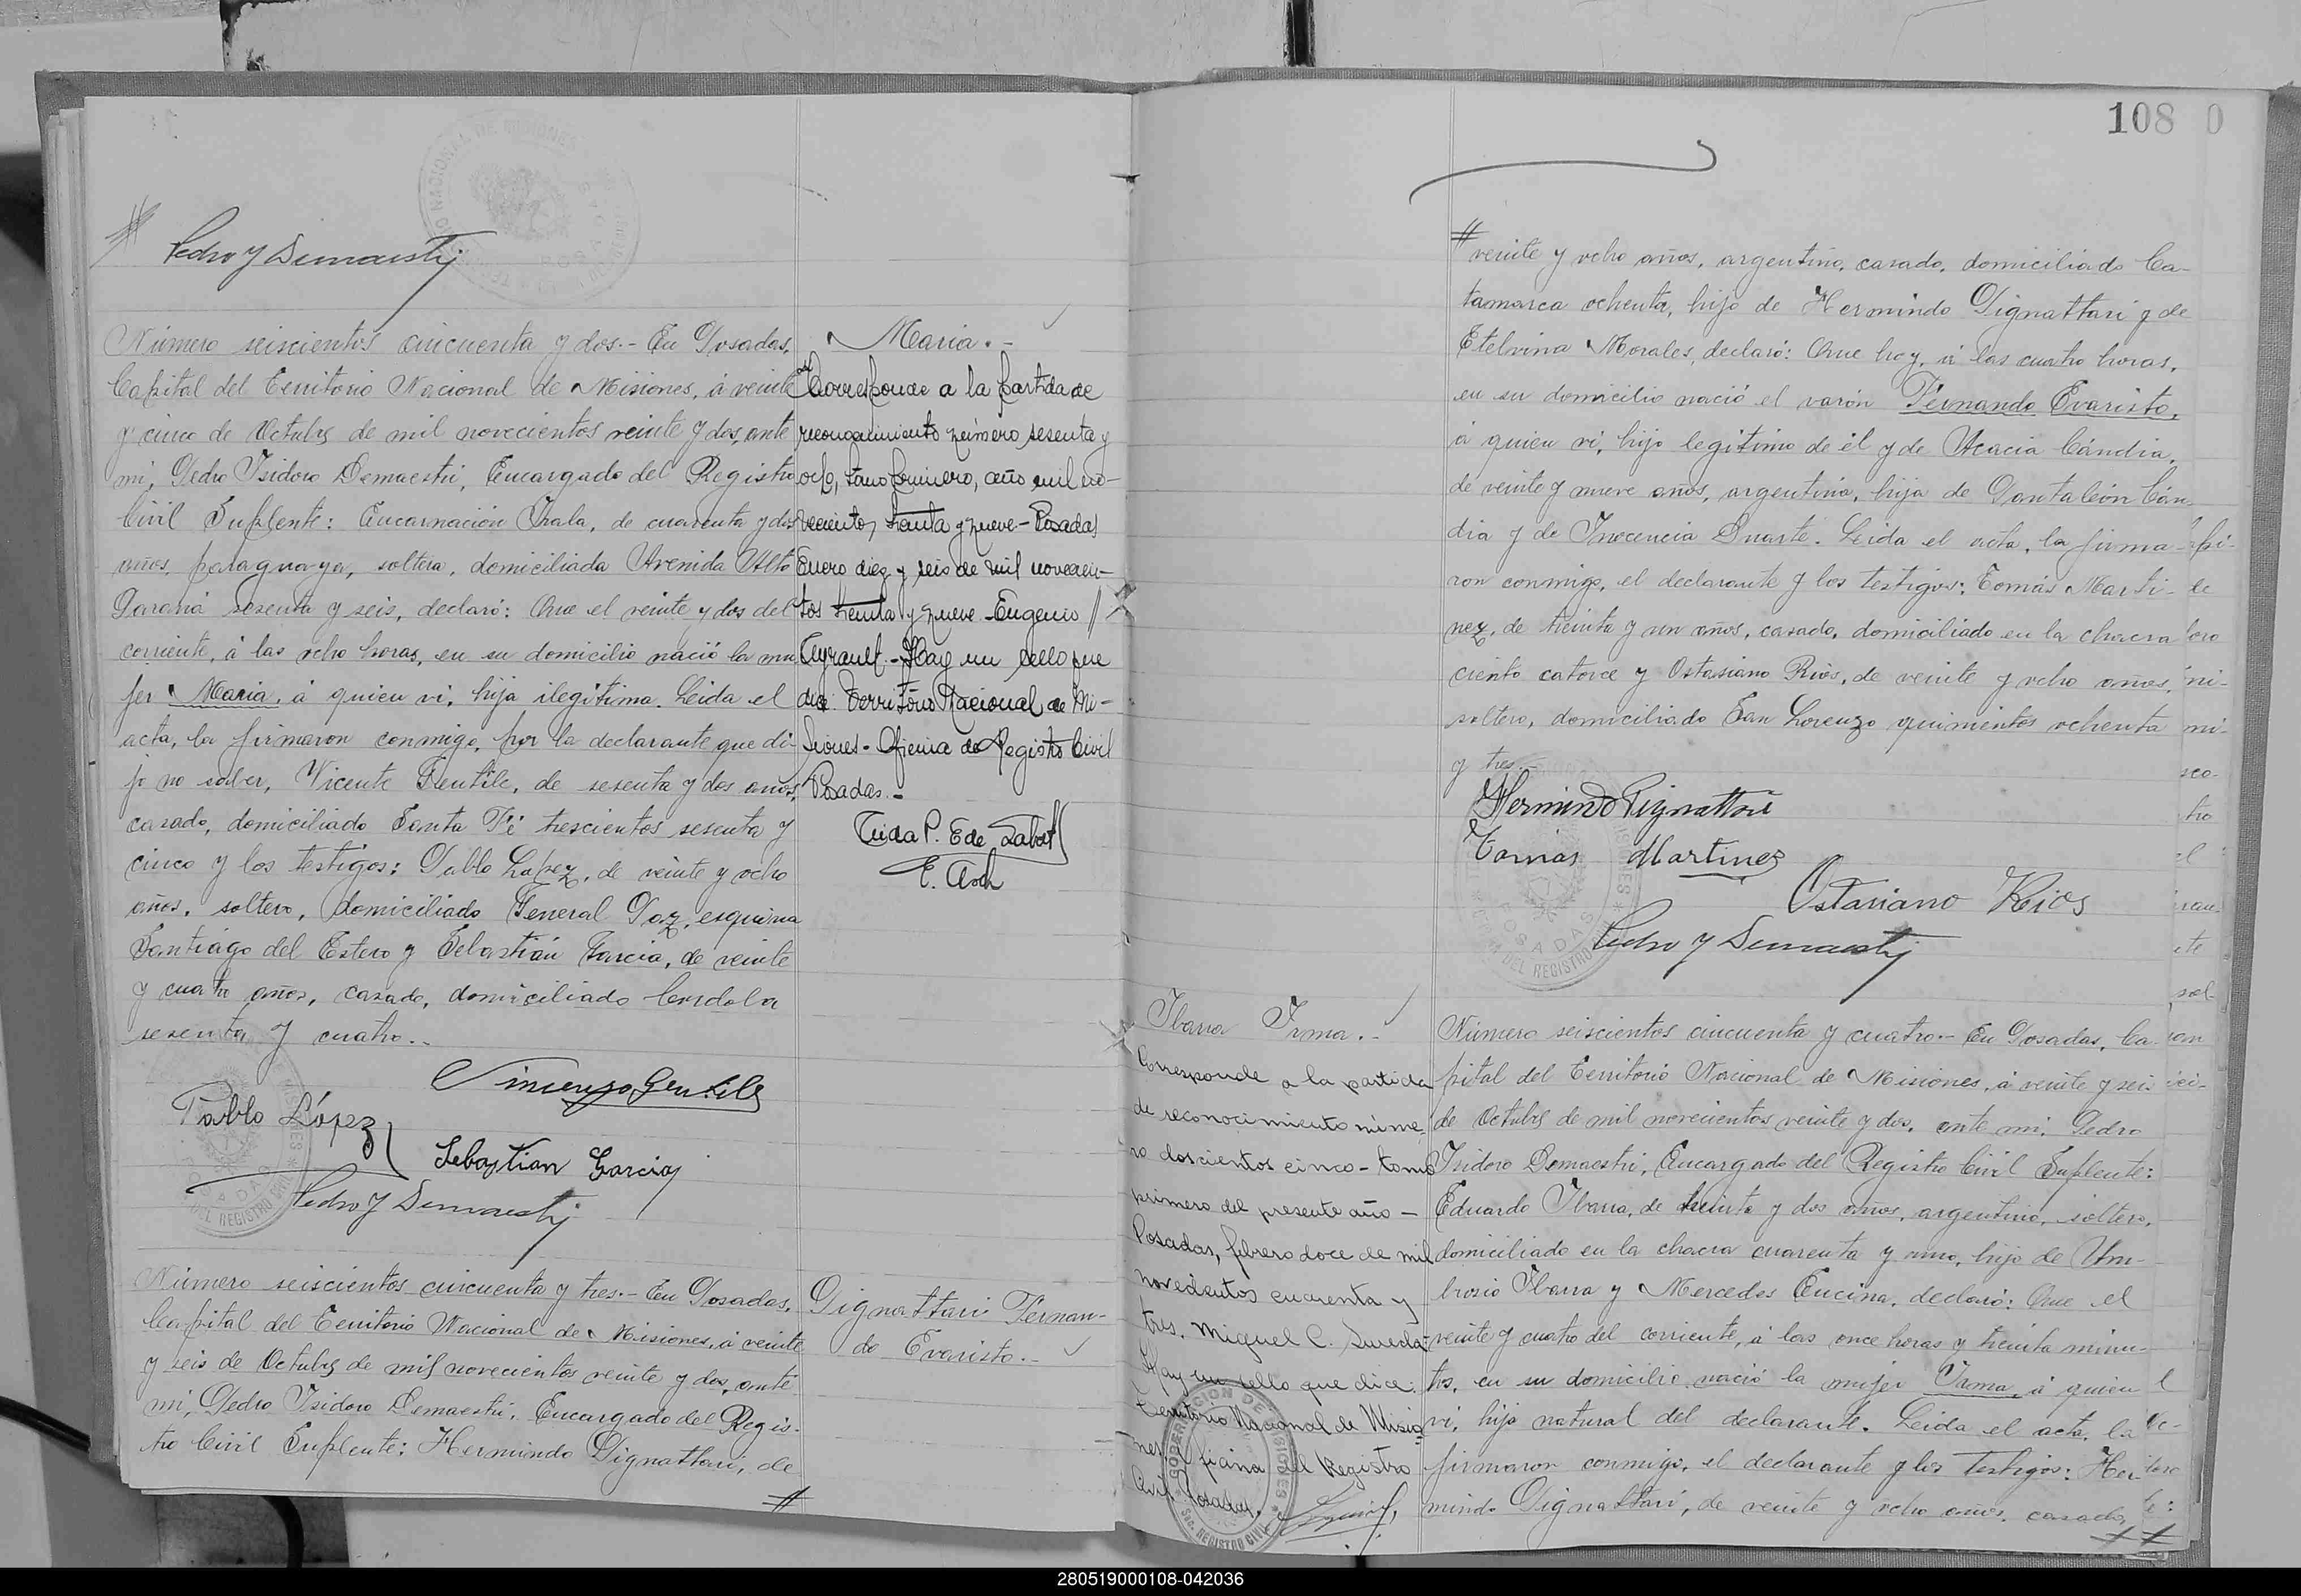 Pedro Y Demaestri
Número seiscientos cincuenta y dos.- En Posadas,
Capital del Territorio Nacional de Misiones, á veinte
y cinco de Octubre de mil novecientos veinte y dos, ante
mi, Pedro Isidoro Demaestri, Encargado del Registro
Civil Suplente: Encarnación Chala, de cuarenta y dos
años, paraguaya, soltera, domiciliada Avenida Alto
Paraná sesenta y seis, declaró: Que el veinte y dos del
corriente, á las ocho horas, en su domicilio nació la mu
jer Maria, á quien vi, hija ilegítima. Leida el
acta, la firmaron conmigo, por la declarante que di-
jo no saber, Vicente Gentile, de sesenta y dos años,
casado, domiciliado Santa Fé trescientos sesenta y
cinco y los testigos: Pablo Lopez, de veinte y ocho
años, soltero, domiciliado General Paz, esquina
Santiago del Estero y Sebastián Garcia, de veinte
y cuatro años, casado, domiciliado Cordoba
sesenta y cuatro.-
Vincenzo Gentile
Pablo López
Sebastian Garcia
Pedro Y Demaestri
Maria.-
Corresponde a la partida de
reconocimiento número sesenta y
ocho, tomo primero, año mil no-
vecientos treinta y nueve - Posadas
Enero diez y seis de mil novecien-
tos treinta y nueve - Eugenio
- Hay un sello que
dice: Territorio Nacional de Mi-
siones - Oficina de Registro Civil
Posadas.-
Número seiscientos cincuenta y tres.- En Posadas,
Capital del Territorio Nacional de Misiones, á veinte
y seis de Octubre de mil novecientos veinte y dos, ante
mi, Pedro Isidoro Demaestri, Encargado del Regis-
tro Civil Suplente: Hermindo Pignattari, de
#
Pignattari Fernan-
do Evaristo.-
108
# veinte y ocho años, argentino, casado, domiciliado Ca-
tamarca ochenta, hijo de Hermindo Pignattari y de
Etelvina Morales, declaró: Que hoy, á las cuatro horas,
en su domicilio nació el varón Fernando Evaristo,
á quien vi, hijo legítimo de él y de Acacia Cándia,
de veinte y nueve años, argentina, hija de Pantaleón Cán-
dia y de Inocencia Duarte. Leida el acta, la firma-
ron conmigo, el declarante y los testigos: Tomás Marti-
nez, de treinta y un años, casado, domiciliado en la chacra
ciento catorce y Ostasiano Rios, de veinte y ocho años,
soltero, domiciliado San Lorenzo quinientos ochenta
y tres.-
Hermindo Pignattari
Tomás Martinez
Ostasiano Rios
Pedro Y Demaestri
Ibarra Irma.-
Corresponde a la partida
de reconocimiento núme-
ro doscientos cinco - tomo
primero del presente año -
Posadas, febrero doce de mil
novecientos cuarenta y
tres. Miguel C.
Hay un sello que dice:
Territorio Nacional de Misio-
nes. Oficina del Registro
Civil Posadas.
Número seiscientos cincuenta y cuatro.- En Posadas, Ca-
pital del Territorio Nacional de Misiones, á veinte y seis
de Octubre de mil novecientos veinte y dos, ante mi, Pedro
Isidoro Demaestri, Encargado del Registro Civil Suplente:
Eduardo Ibarra, de treinta y dos años, argentino, soltero,
domiciliado en la chacra cuarenta y uno, hijo de Am-
brosio Ibarra y Mercedes Encina, declaró: Que el
veinte y cuatro del corriente, á las once horas y treinta minu-
tos, en su domicilio nació la mujer Irma, á quien
vi, hija natural del declarante. Leida el acta, la
firmaron conmigo, el declarante y los testigos: Her-
mindo Pignattari, de veinte y ocho años, casado,
280519000108-042036